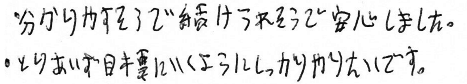 ・分かりやすそうで続けられそうで安心しました。
・とりあいず目標にいくようにしっかりやりたいです。